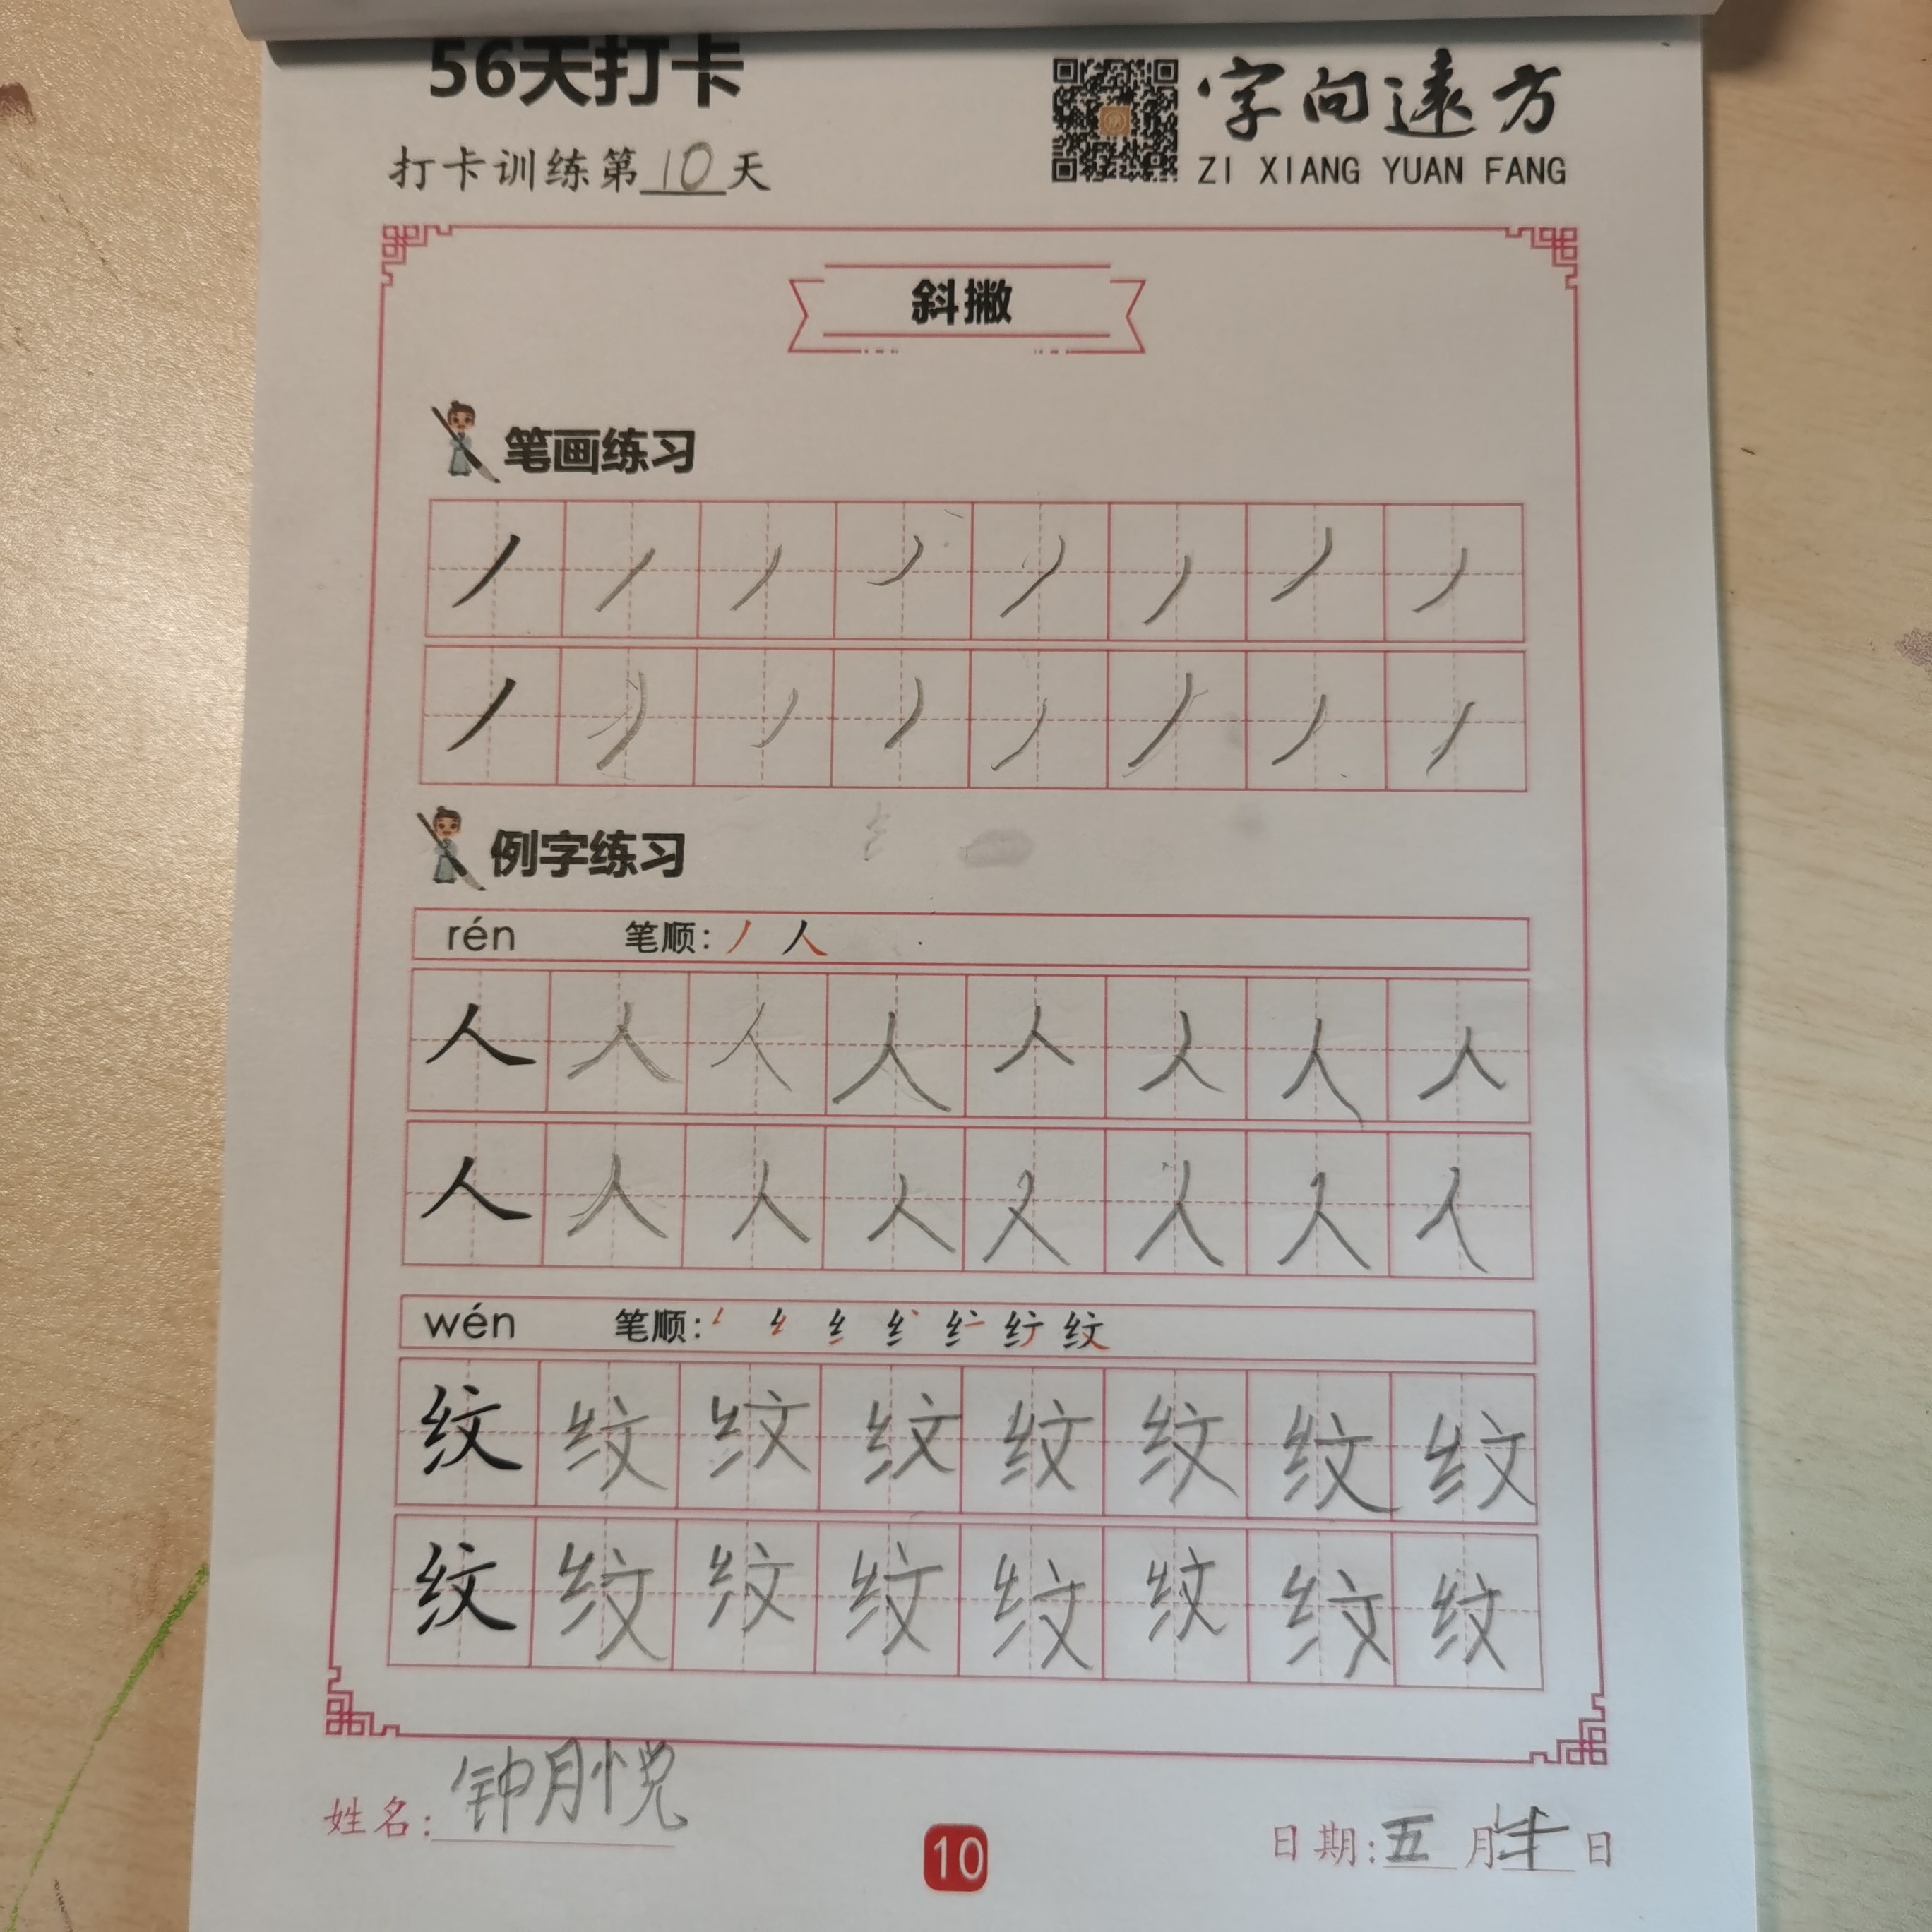 56天打卡
打卡训练第10天
字向遠方
ZI XIANG YUAN FANG
斜撇
笔画练习
丿丿丿丿丿丿丿丿
丿丿丿丿丿丿丿丿
例字练习
rén 笔顺: 丿 人
人人人人人人人人
人人人人人人人人
wén 笔顺:
纹纹纹纹纹纹纹纹
纹纹纹纹纹纹纹纹
姓名: 钟月悦
10
日期: 五 月 日